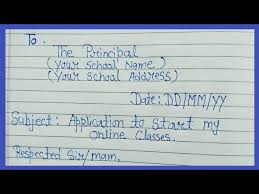 To,
The Principal
(Your School Name)
(Your School Address)
Date: DD/MM/YY
Subject: Application to Start my
Online Classes.
Respected Sir/mam,